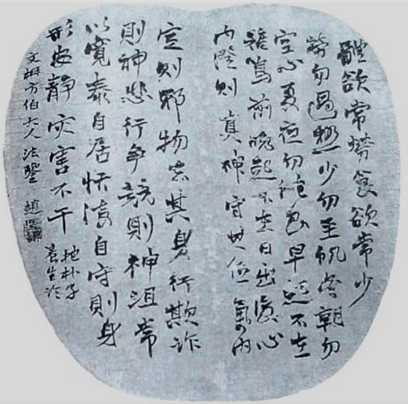 體欲常勞食欲常少
勞勿過極少勿至飢冬朝勿
空心夏夜勿飽食早起不在
雞鳴前晚起不在日出後心
內澄則真神守其位氣內
定則邪物去其身行欺詐
則神悲行爭競則神沮常
以寬泰自居恬淡自守則身
形安靜灾害不干
抱朴子
養生論
方伯大人法鑒 趙